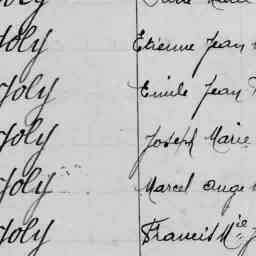 Joly Etienne Jean
Joly Emile Jean
Joly Joseph Marie
Joly Marcel Ange
Joly Francis Mie